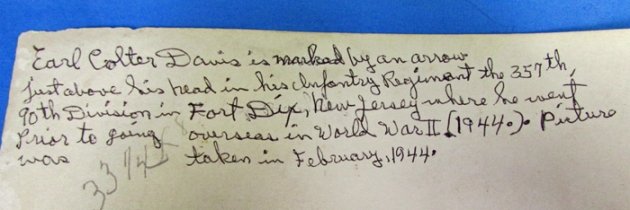 Earl Colter Davis is marked by an arrow
just above his head in his Infantry Regimant the 357th,
90th Division in Fort Dix, New Jersey where he went
Prior to going overseas in World War II (1944.). Picture
was taken in February, 1944.